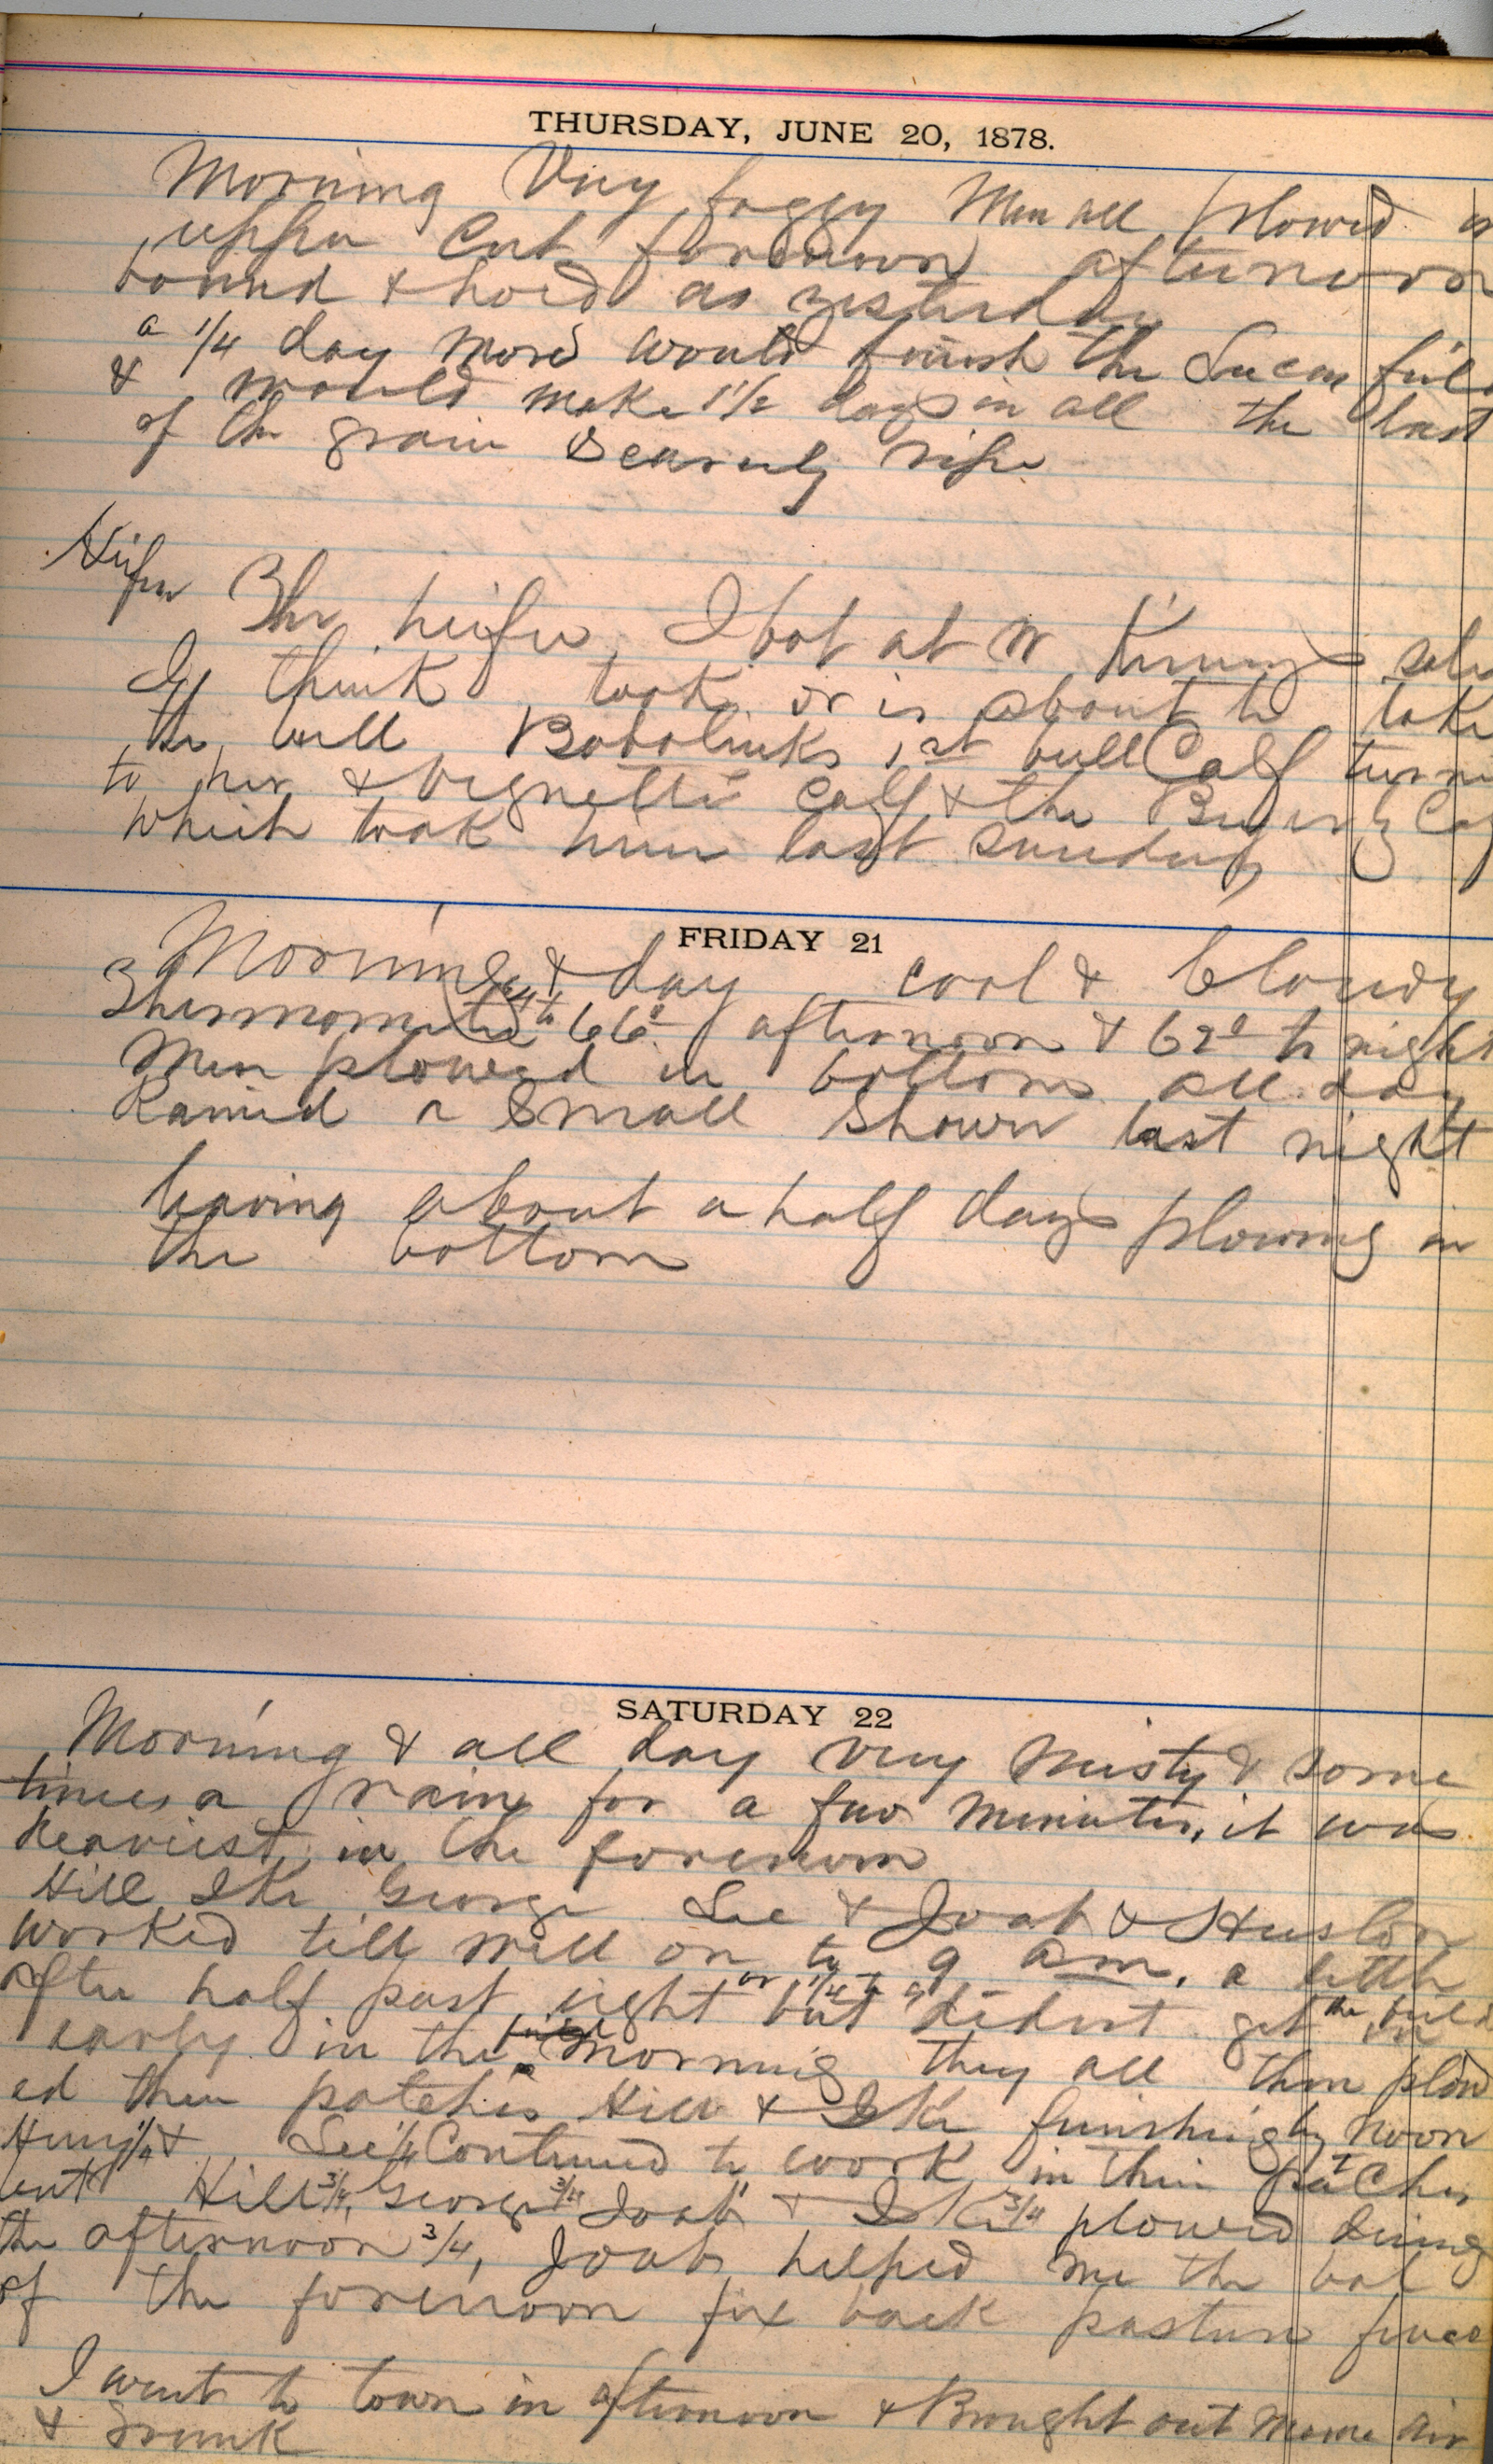 THURSDAY, JUNE 20, 1878.
Morning Very foggy Men all plowed
upper Cut forenoon afternoon
bound & hoed as yesterday
a 1/4 day more would finish the
& would make 1 1/2 days in all the last
of the grain Scarcely ripe
Heifer
The heifer I bot at Kinnys sale
I think took or is about to take
the bull Bobolinks 1st bull Calf
to her & Vignettes calf & the
which took him last Sunday
FRIDAY 21
Morning & day cool & Cloudy
Thermometer 66° afternoon & 62° to night
Men plowed in bottom all day
Rained a Small Shower last night
leaving about a half days plowing in
the bottom
SATURDAY 22
Morning & all day very Misty & some
times a rain for a few minutes, it was
heaviest in the forenoon
Hill Ike George Lee & Joab & Huston
worked till well on to 9 am, a little
after half past eight or but didnt get the field
early in the morning they all then plow
ed their patches Hill & Ike finishing by Noon
Henry 1/4 & Lee 1/4 Continued to work in their patches
but Hill 3/4, George 3/4 Joab & Ike 3/4 plowed during
the afternoon 3/4, Joab helped me the bal
of the forenoon fix back pasture fence
I went to town in afternoon & Brought out
& Trunk